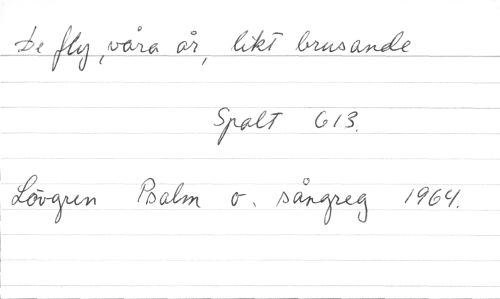 De fly, våra år, likt brusande
Spalt 613.
Lövgren Psalm o. sångreg 1964.